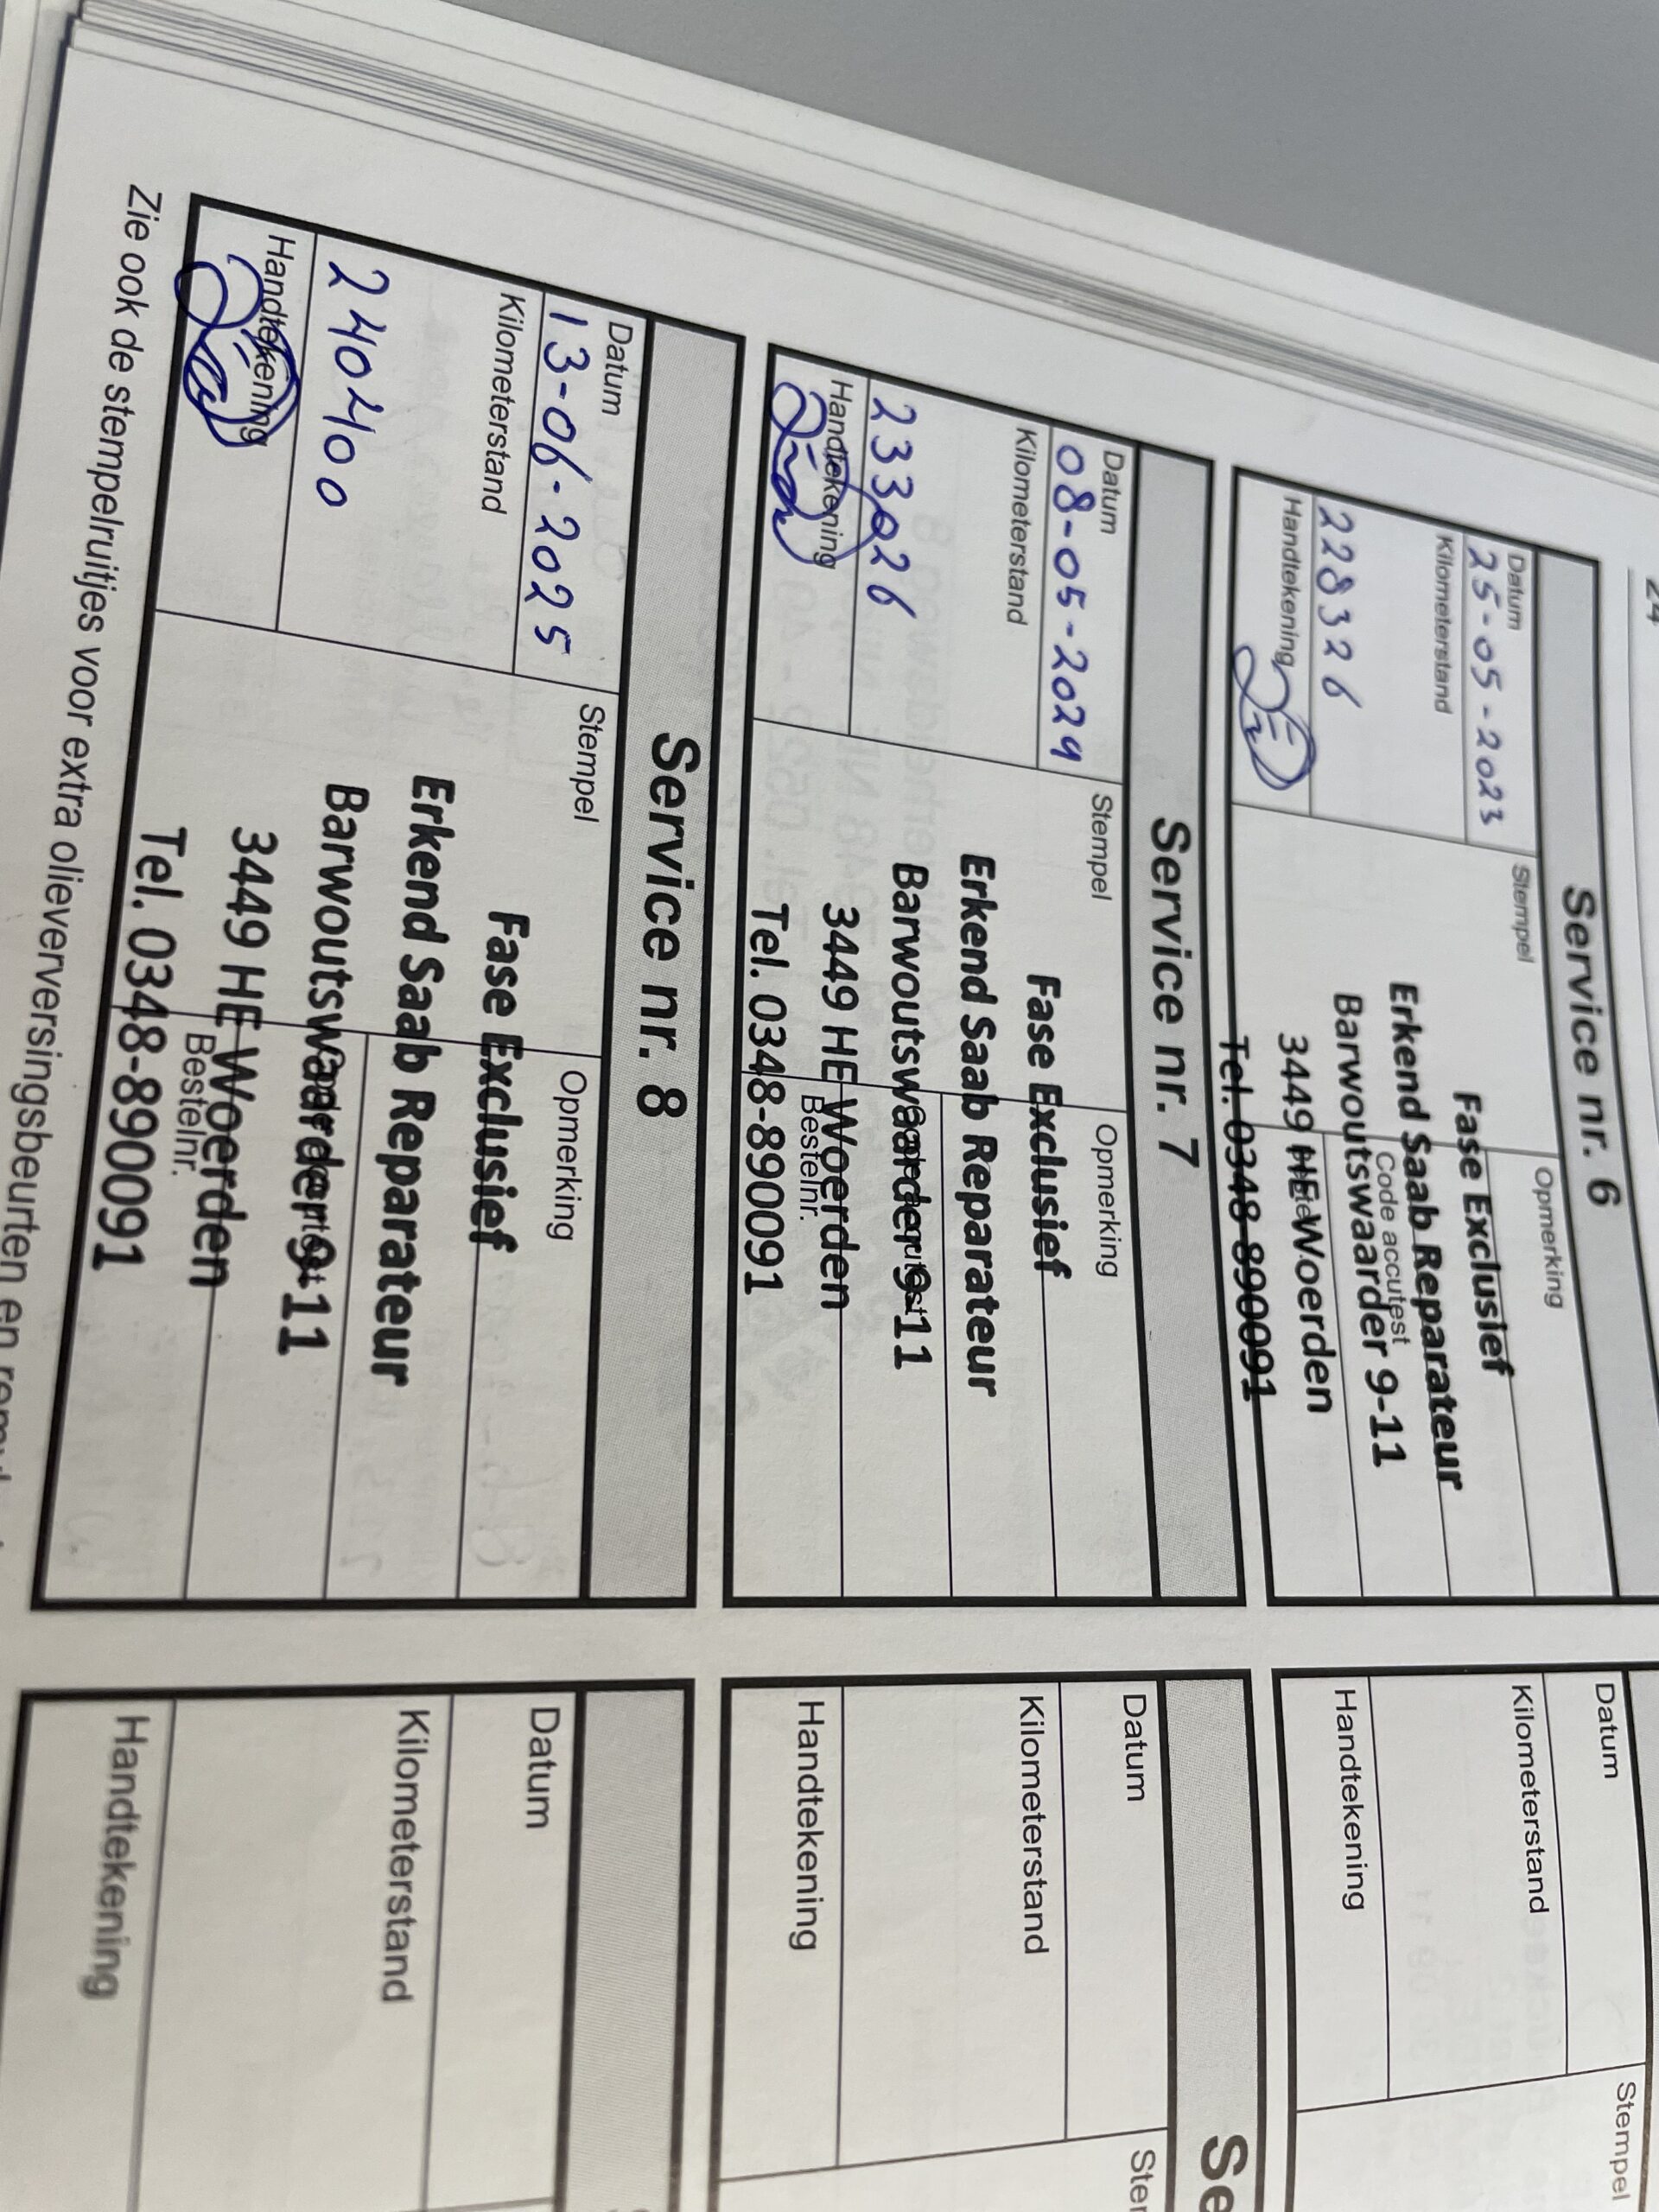 24
Service nr. 6
Datum
25-05-2023
Kilometerstand
228326
Handtekening
Stempel
Opmerking
Fase Exclusief
Erkend Saab Reparateur
Code accutest
Barwoutswaarder 9-11
3449 HE Woerden
Tel. 0348-890091
Service nr. 7
Datum
08-05-2024
Kilometerstand
233026
Handtekening
Stempel
Opmerking
Fase Exclusief
Erkend Saab Reparateur
Barwoutswaarder 9-11
3449 HE Woerden
Bestelnr.
Tel. 0348-890091
Service nr. 8
Datum
13-06-2025
Kilometerstand
240400
Handtekening
Stempel
Opmerking
Fase Exclusief
Erkend Saab Reparateur
Barwoutswaarder 9-11
3449 HE Woerden
Bestelnr.
Tel. 0348-890091
Zie ook de stempelruitjes voor extra olieverversingsbeurten en
Datum
Kilometerstand
Handtekening
Stempel
Se
Datum
Kilometerstand
Handtekening
Ste
Datum
Kilometerstand
Handtekening